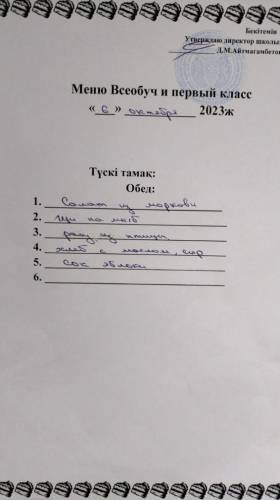 Бекітемін
Утверждаю директор школы
Д.М.Айтмагамбетов
Меню Всеобуч и первый класс
« 6 » октября 2023ж
Түскі тамақ:
Обед:
1. Салат из моркови
2. Щи по
3. рагу из птицы
4. хлеб с маслом, сыр
5. Сок яблоки
6.